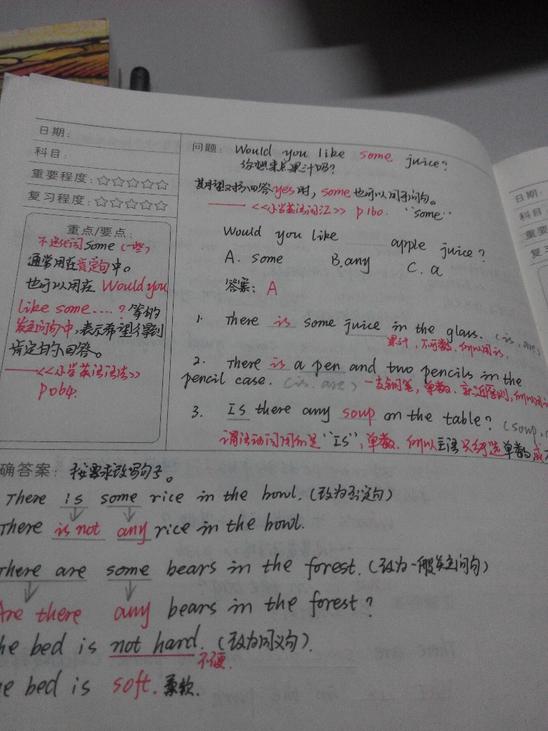 日期:
科目:
重要程度:☆☆☆☆☆
复习程度:☆☆☆☆☆
重点/要点:
some(一些)
通常用在肯定句中。
也可以用在Would you
like some....?等的
疑问句中,表示希望得到
肯定的回答。
——<<小学英语语法>>
P064.
问题: Would you like some juice?
你想来点果汁吗?
其希望对方回答yes时,some也可以用于问句。
——<<小学英语词汇>> P160. "some"
Would you like apple juice?
A. some B. any C. a
答案: A
1. There is some juice in the glass. (is, are)
果汁,不可数,所以用is.
2. There is a pen and two pencils in the
pencil case. (is, are) 一支钢笔,单数,就近原则,所以用is
3. Is there any soup on the table? (soup,
谓语动词用的是"Is",单数,所以主语只能选单数或
确答案: 按要求改写句子。
There is some rice in the bowl. (改为否定句)
There is not any rice in the bowl.
There are some bears in the forest. (改为一般疑问句)
Are there any bears in the forest?
he bed is not hard. (改为同义句)
不硬.
he bed is soft. 柔软.
日期:
科目
重要
复习